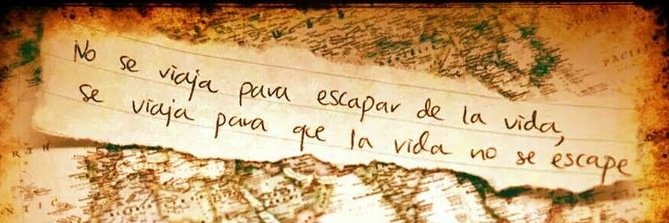 No se viaja para escapar de la vida,
se viaja para que la vida no se escape